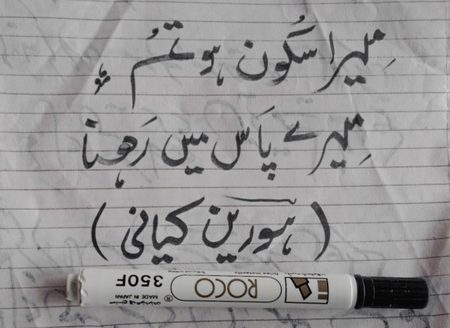 مِیرا سُکون ہو تُم
مِیرے پَاس میں رَہنا
(ہورین کیانی)
ROCO
350F
MADE IN JAPAN